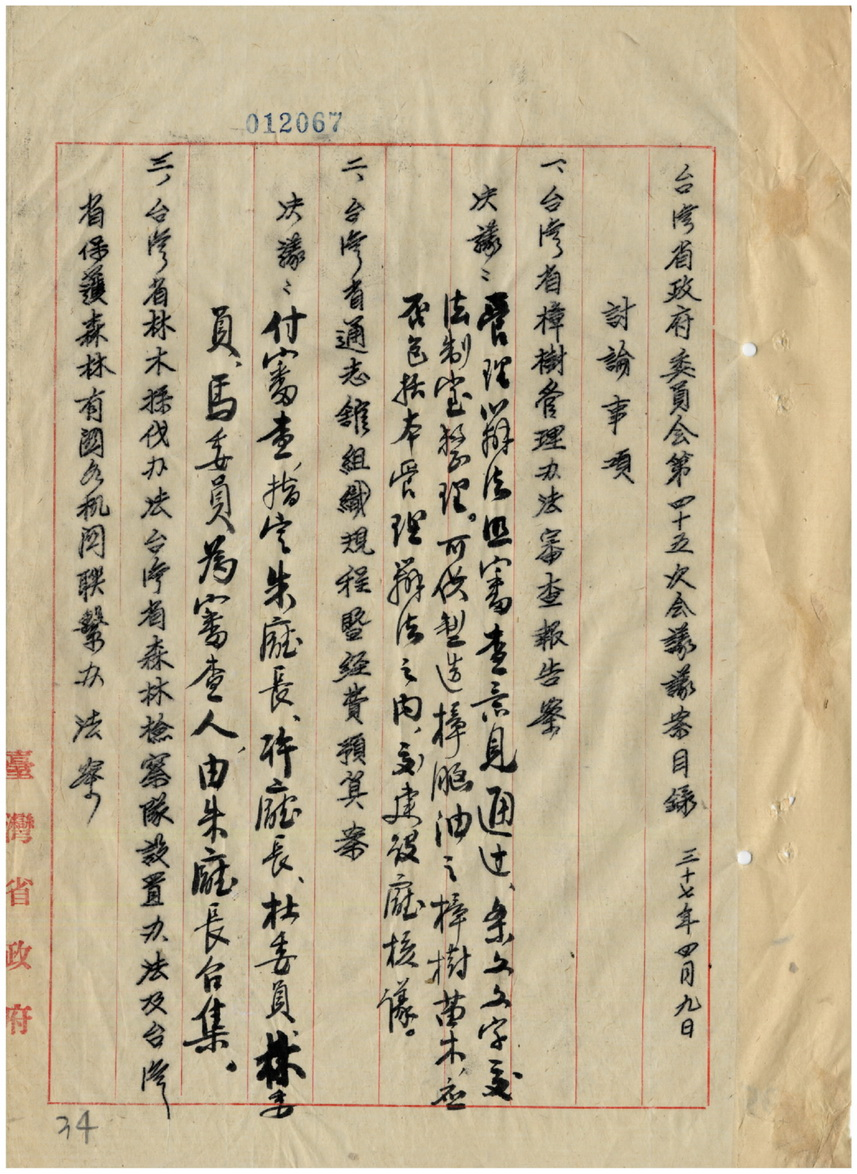 012067
台灣省政府委員会第四十五次会議議案目錄 三十七年四月九日
討論事項
一、台灣省樟樹管理办法審查報告案
决議:管理辦法照審查意見通过、条文文字交
法制室整理。可供製造樟腦油之樟樹苗木、应
否包括本管理辦法之内、交建設廳核議。
二、台灣省通志館組織規程暨経費預算案
决議:付審查,指定朱廳長、許廳長、杜委員、林委
員、馬委員為審查人,由朱廳長召集。
三、台灣省林木採伐办法台灣省森林檢察隊設置办法及台灣
省保護森林有関各机関聯繫办法案
臺灣省政府
34